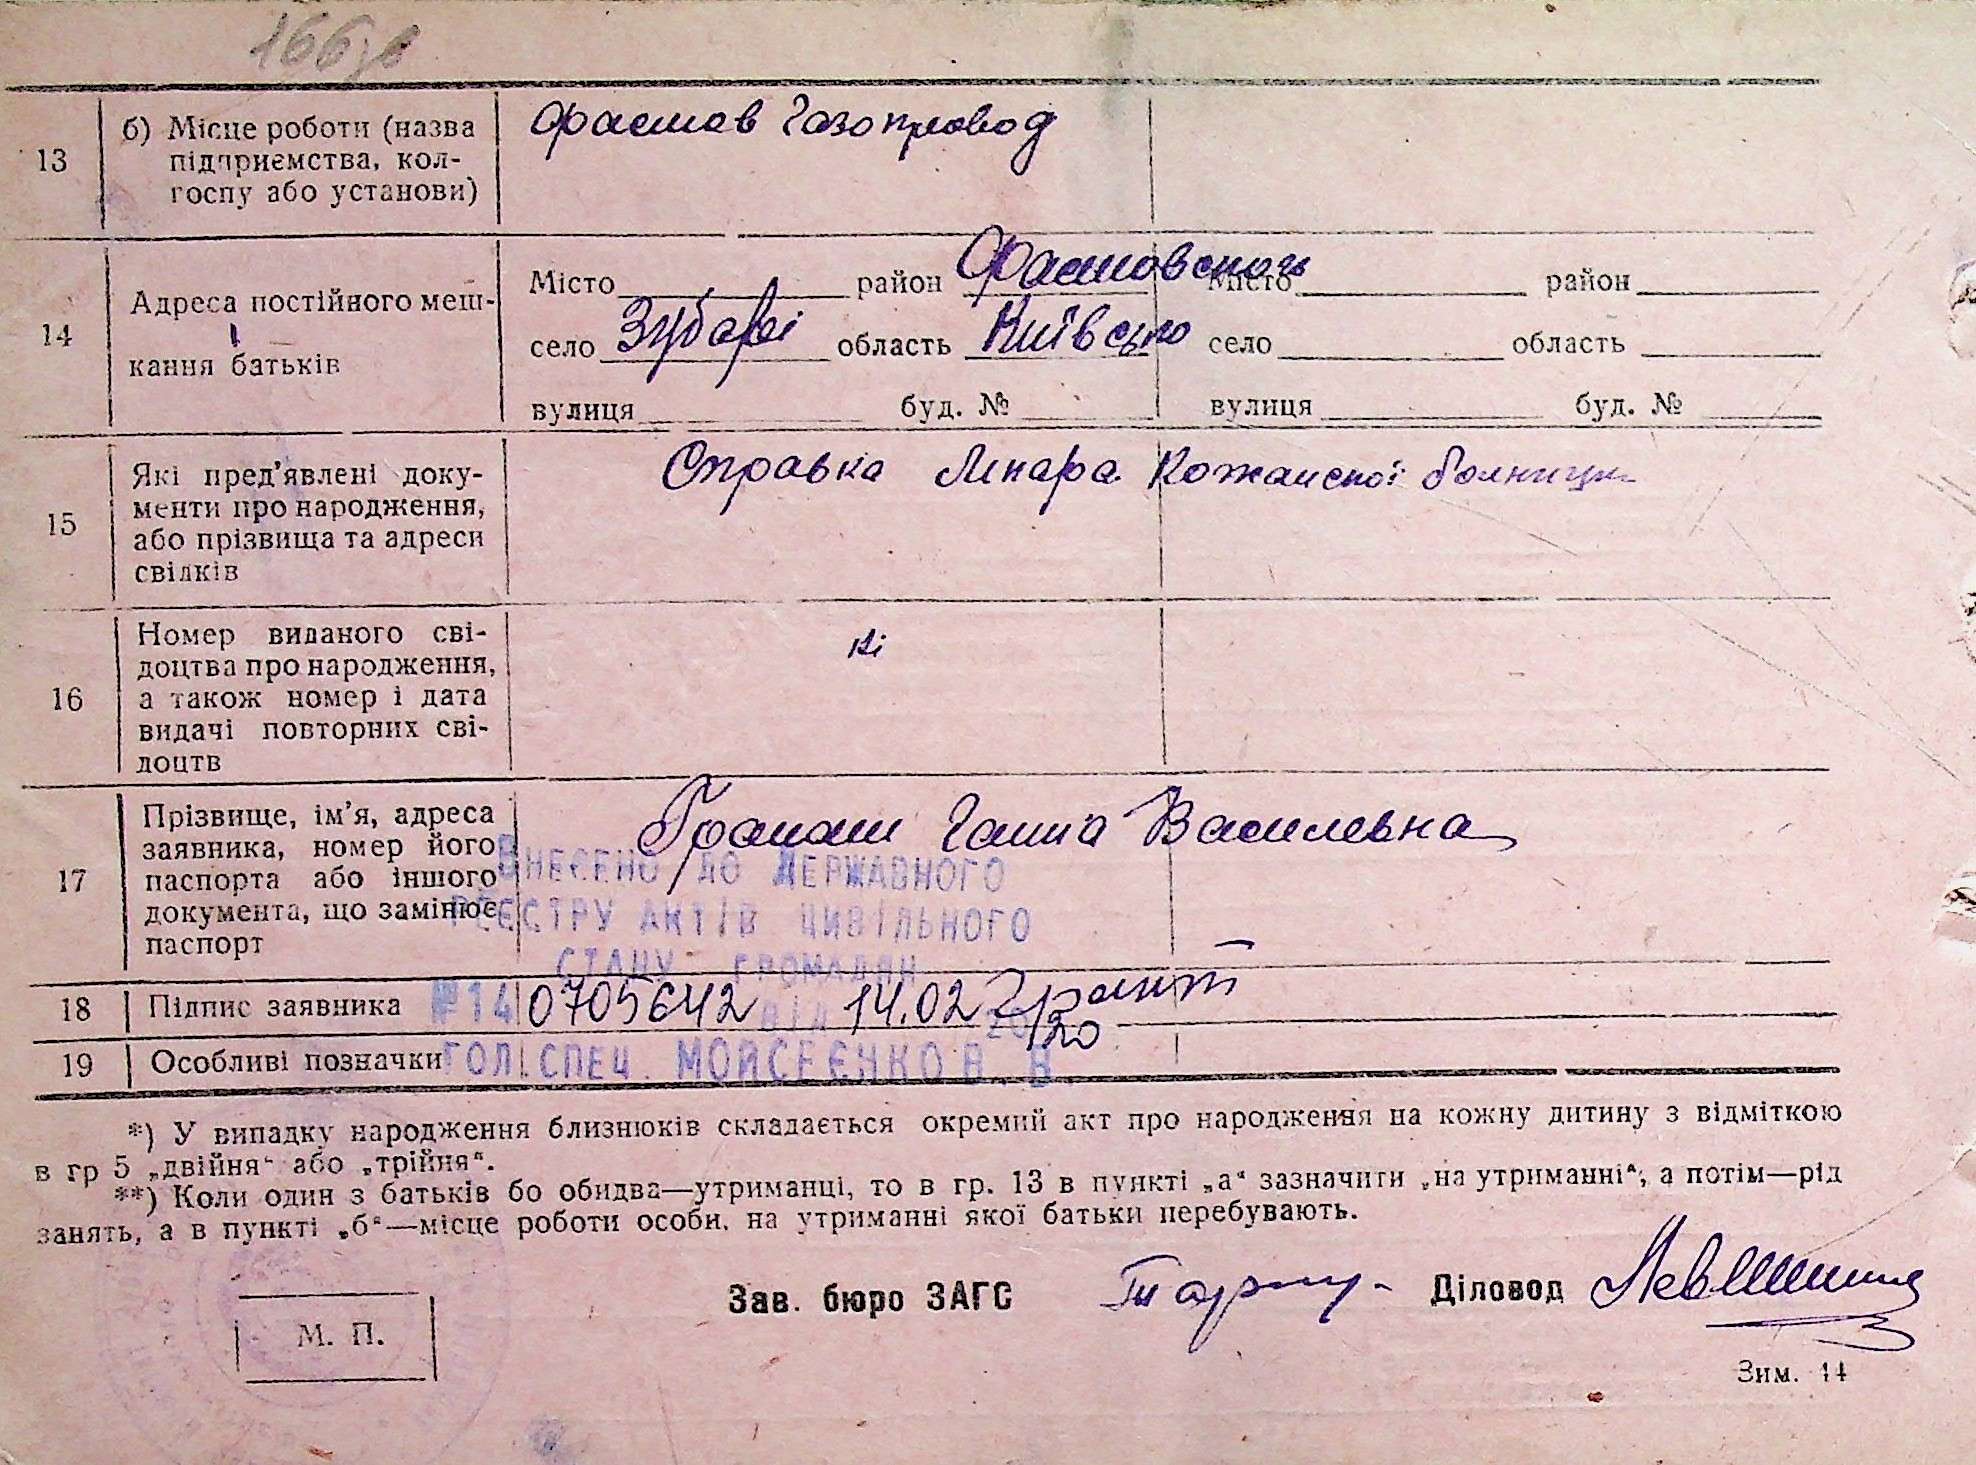 166зв
13
б) Місце роботи (назва
підприємства, кол-
госпу або установи)
Фастов Газопровод
14
Адреса постійного меш-
кання батьків
Місто район Фастовского Місто район
село Зубарі область Київсько село область
вулиця буд. № вулиця буд. №
15
Які пред'явлені доку-
менти про народження,
або прізвища та адреси
свідків
Справка Лікара Кожанської болници
16
Номер виданого сві-
доцтва про народження,
а також номер і дата
видачі повторних сві-
доцтв
17
Прізвище, ім'я, адреса
заявника, номер його
паспорта або іншого
документа, що замінює
паспорт
Ганна Василевна
ВНЕСЕНО ДО ДЕРЖАВНОГО
РЕЄСТРУ АКТІВ ЦИВІЛЬНОГО
СТАНУ ГРОМАДЯН
18 Підпис заявника № 14 0705642 від 14.02 2020
19 Особливі позначки ГОЛ.СПЕЦ. МОЙСЕЄНКО В. В.
*) У випадку народження близнюків складається окремий акт про народження на кожну дитину з відміткою
в гр 5 „двійня“ або „трійня“.
**) Коли один з батьків бо обидва—утриманці, то в гр. 13 в пункті „а“ зазначити „на утриманні“, а потім—рід
занять, а в пункті „б“—місце роботи особи, на утриманні якої батьки перебувають.
Зав. бюро ЗАГС Діловод
М. П.
Зим. 14